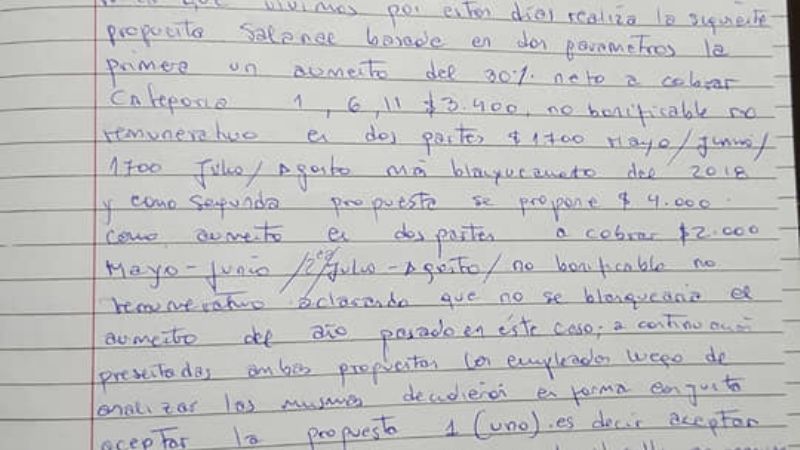 que vivimos por estos días realiza la siguiente
propuesta salarial basada en dos parametros la
primera un aumento del 30% neto a cobrar
Categoria 1, 6, 11 $3.400, no bonificable no
remunerativo en dos partes $1700 Mayo/Junio/
1700 Julio/Agosto más blanqueamiento del 2018
y como segunda propuesta se propone $4.000.
como aumento en dos partes a cobrar $2.000
Mayo-Junio / Julio-Agosto/ no bonificable no
remunerativo aclarando que no se blanquearia el
aumento del año pasado en éste caso; a continuación
presentadas ambas propuestas los empleados luego de
analizar las mismas decidieron en forma conjunta
aceptar la propuesta 1 (uno). es decir aceptan